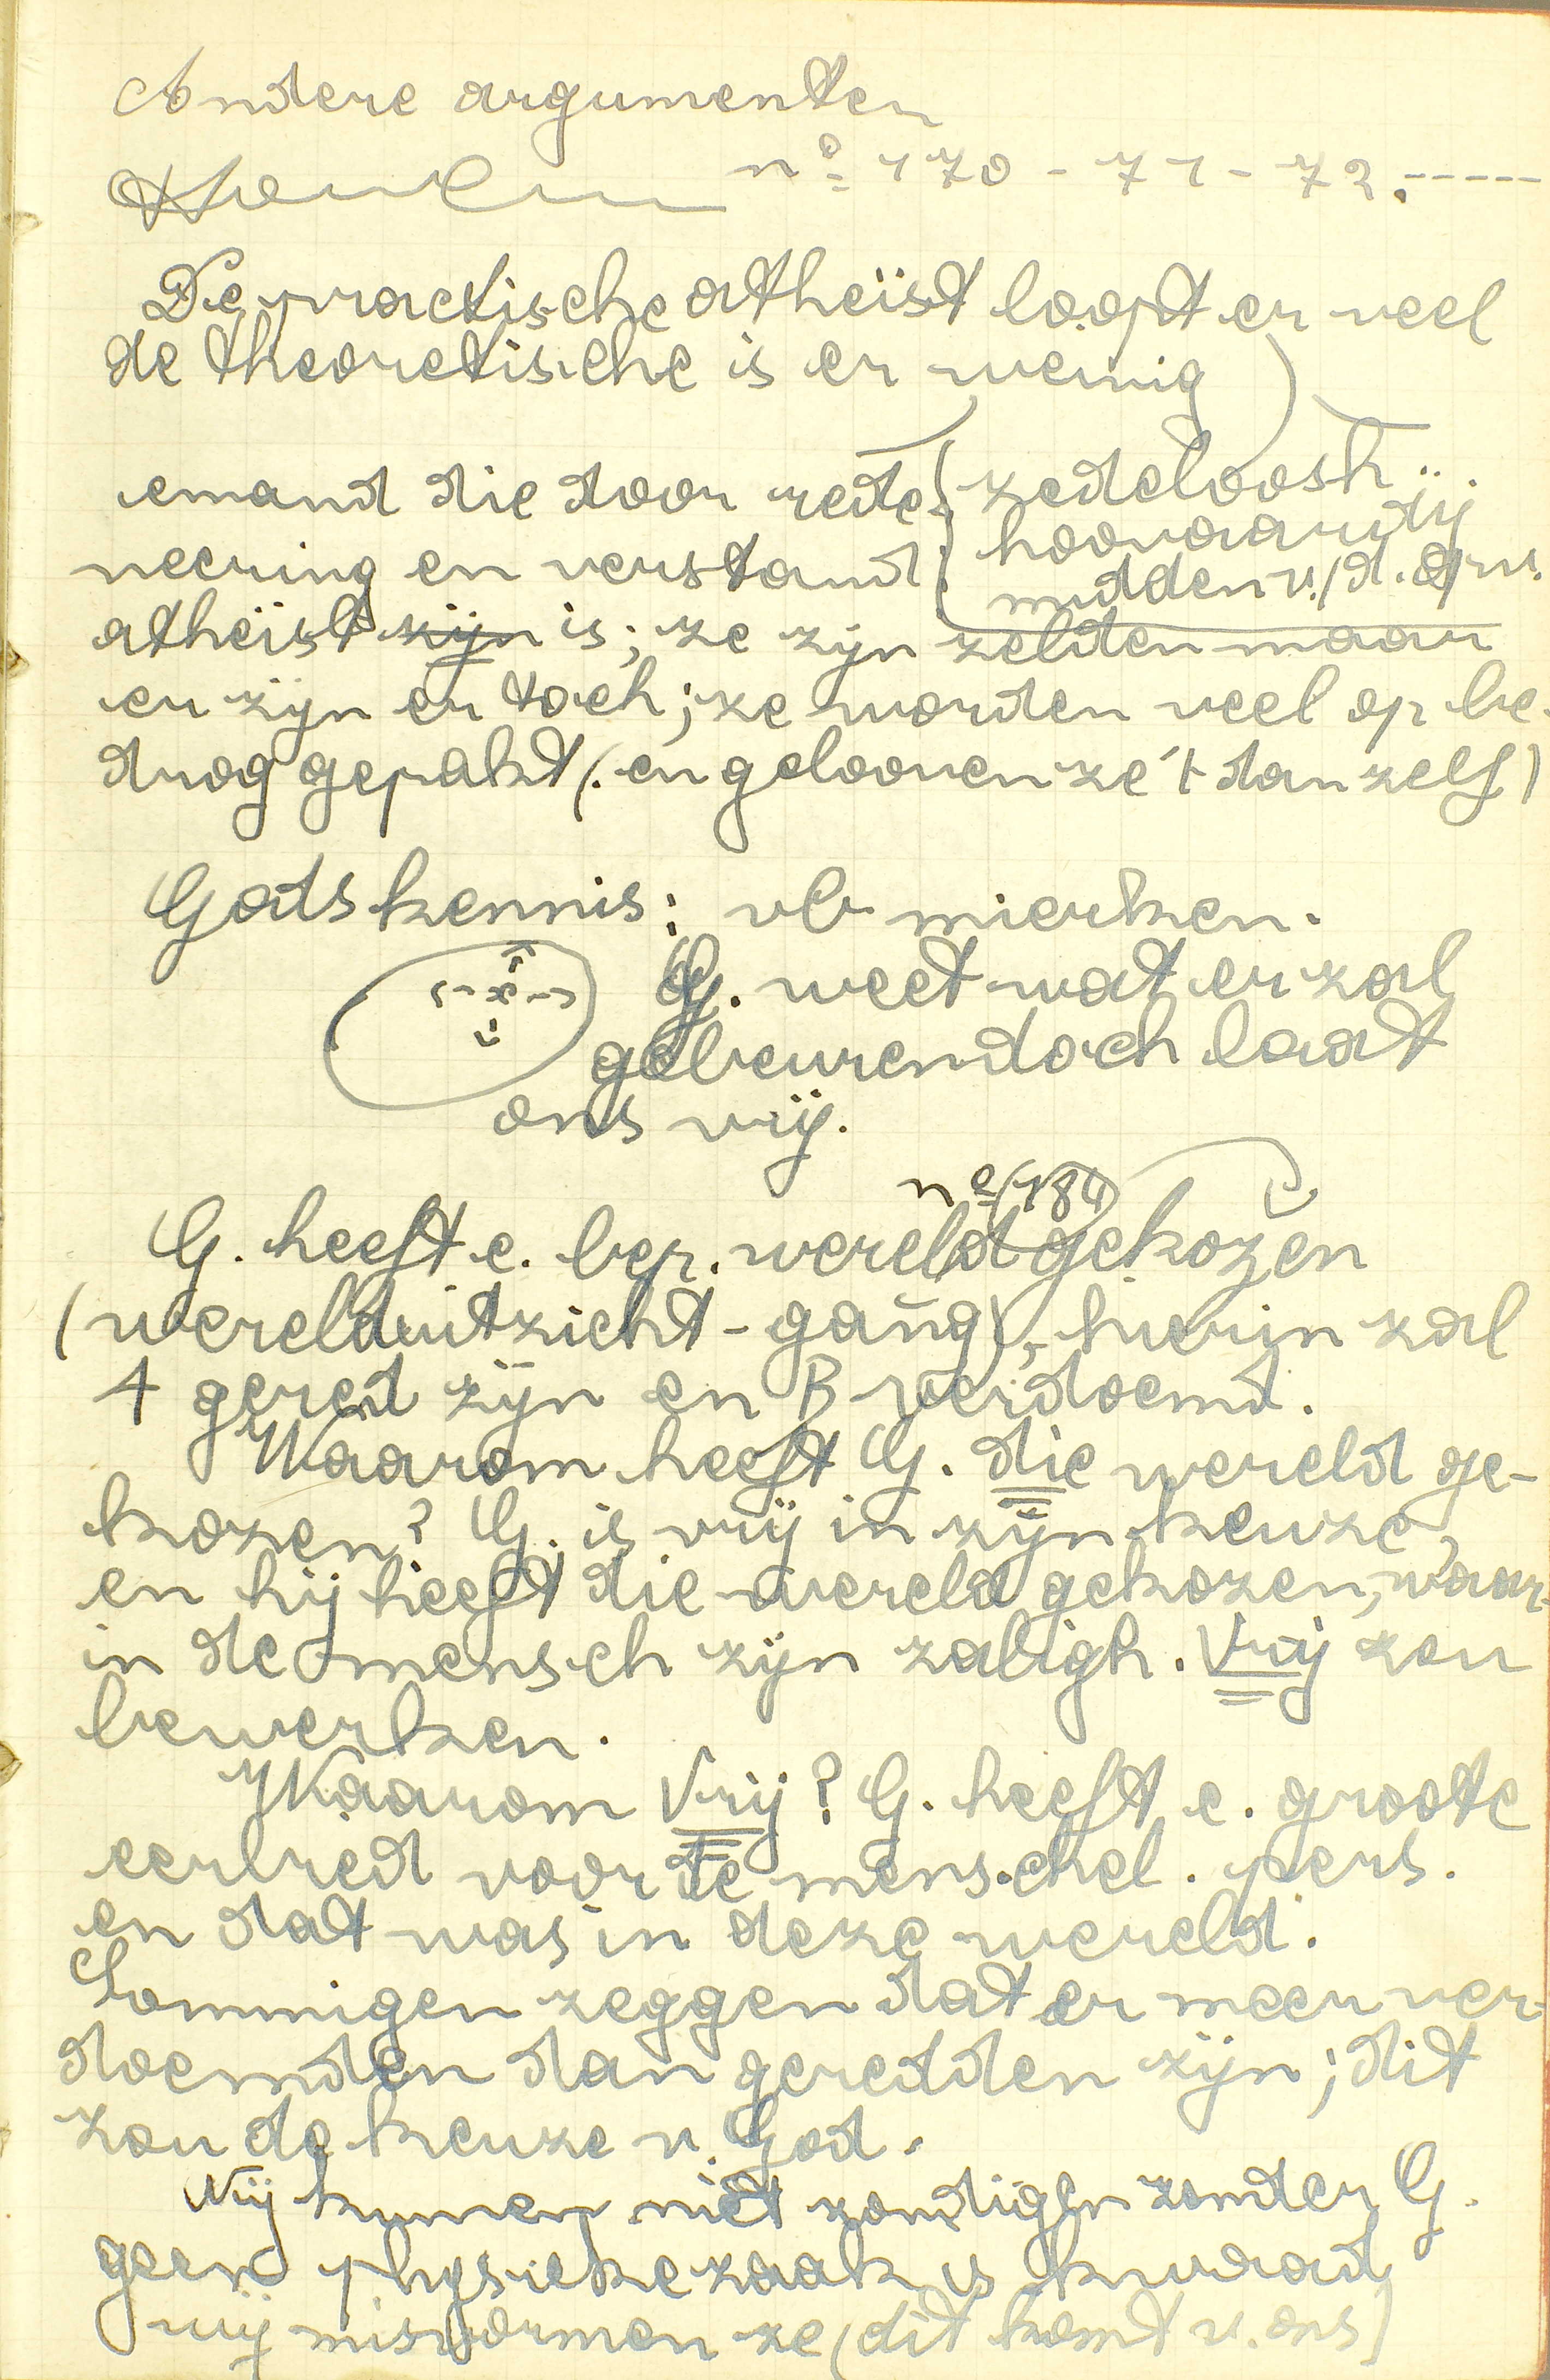 Andere argumenten
nº 170 - 71 - 72.-----
De practische atheïst loopt er veel
de theoretische is er weinig
emand die door rede- zedeloosh.
hoovaardij
neering en verstand midden v./d. opv.
atheïst zijn is; ze zijn zelden maar
er zijn er toch; ze worden veel op be-
drog gepakt (en gelooven ze 't dan zelf)
Gods kennis: vb mierken.
G. weet wat er zal
gebeuren doch laat
ons vrij.
nº 184
G. heeft e. bep. wereld gekozen
(werelduitzicht - gang), hierin zal
A gered zijn en B verdoemd.
Waarom heeft G. die wereld ge-
kozen? G. is vrij in zijn keuze,
en hij heeft die wereld gekozen, waar-
in de mensch zijn zaligh. Vrij zou
bewerken.
Waarom Vrij? G. heeft e. groote
eerbied voor de menschel. pers.
en dat was in deze wereld.
Sommigen zeggen dat er meer ver-
doemden dan geredden zijn; dit
zou de keuze v. God.
Wij kunnen niet zondigen zonder G.
geen physieke zaak is kwaad
wij misvormen ze (dit komt v. ons)